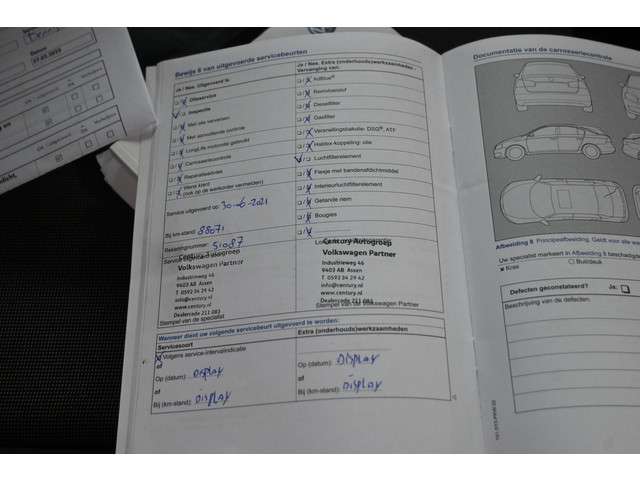 Datum
Bewijs 6 van uitgevoerde servicebeurten
Ja / Nee Uitgevoerd is:
Olieservice
Inspectie
Met olie verversen
Met aanvullende controle
LongLife motorolie gebruikt
Carrosseriecontrole
Reparatieadvies
Wenst klant
(ook op de werkorder vermelden)
Service uitgevoerd op: 30-6-2021
Bij km-stand: 88071
Rekeningnummer: 51087
Century Autogroep
Volkswagen Partner
Industrieweg 46
9403 AB Assen
T 0592 34 29 42
info@century.nl
www.century.nl
Dealercode 211.083
Stempel van de specialist
Ja / Nee Extra (onderhouds)werkzaamheden
Vervanging van:
AdBlue®
Remvloeistof
Dieselfilter
Gasfilter
Versnellingsbakolie: DSG®, ATF
Haldex-koppeling: olie
Luchtfilterelement
Flesje met bandendichtmiddel
Interieurluchtfilterelement
Getande riem
Bougies
Century Autogroep
Volkswagen Partner
Industrieweg 46
9403 AB Assen
T 0592 34 29 42
info@century.nl
www.century.nl
Dealercode 211.083
Stempel van de Volkswagen Partner
Wanneer dient uw volgende servicebeurt uitgevoerd te worden:
Servicesoort
Extra (onderhouds)werkzaamheden
Volgens service-intervalindicatie
of
Op (datum): DISPLAY
Op (datum): DISPLAY
of
of
Bij (km-stand): DISPLAY
Bij (km-stand): DISPLAY
Documentatie van de carrosseriecontrole
Afbeelding 8 Principeafbeelding. Geldt voor alle
Uw specialist markeert in Afbeelding 8 beschadig
Kras
Buil/deuk
Defecten geconstateerd? Ja:
Beschrijving van de defecten: